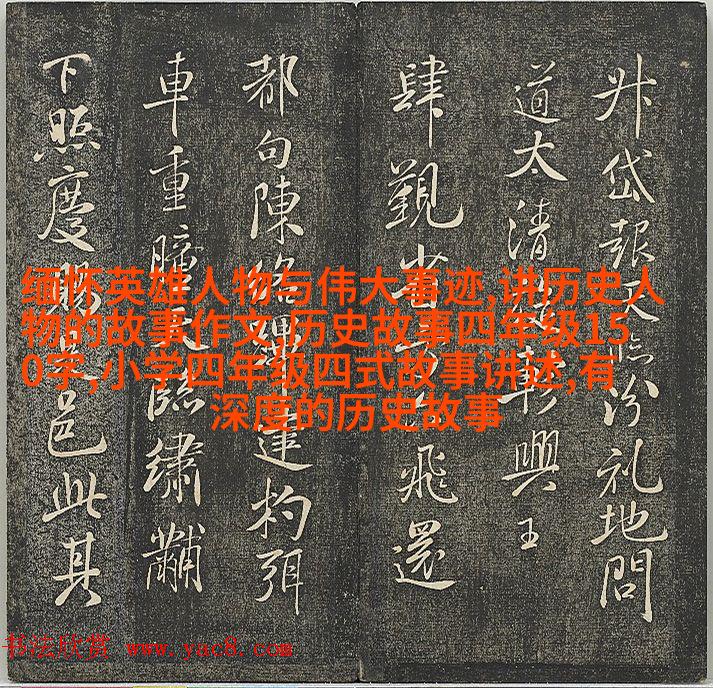 缅怀英雄人物与伟大事迹,讲历史人
物的故事作文,历史故事四年级15
0字,小学四年级四式故事讲述,有
深度的历史故事
升岱報天汾礼地問
道太清興王
肆觀省飛還
都句陳杓弭
車重瞳臨繡黼
下照慶賜邑此其
书法欣赏 www.yac8.com